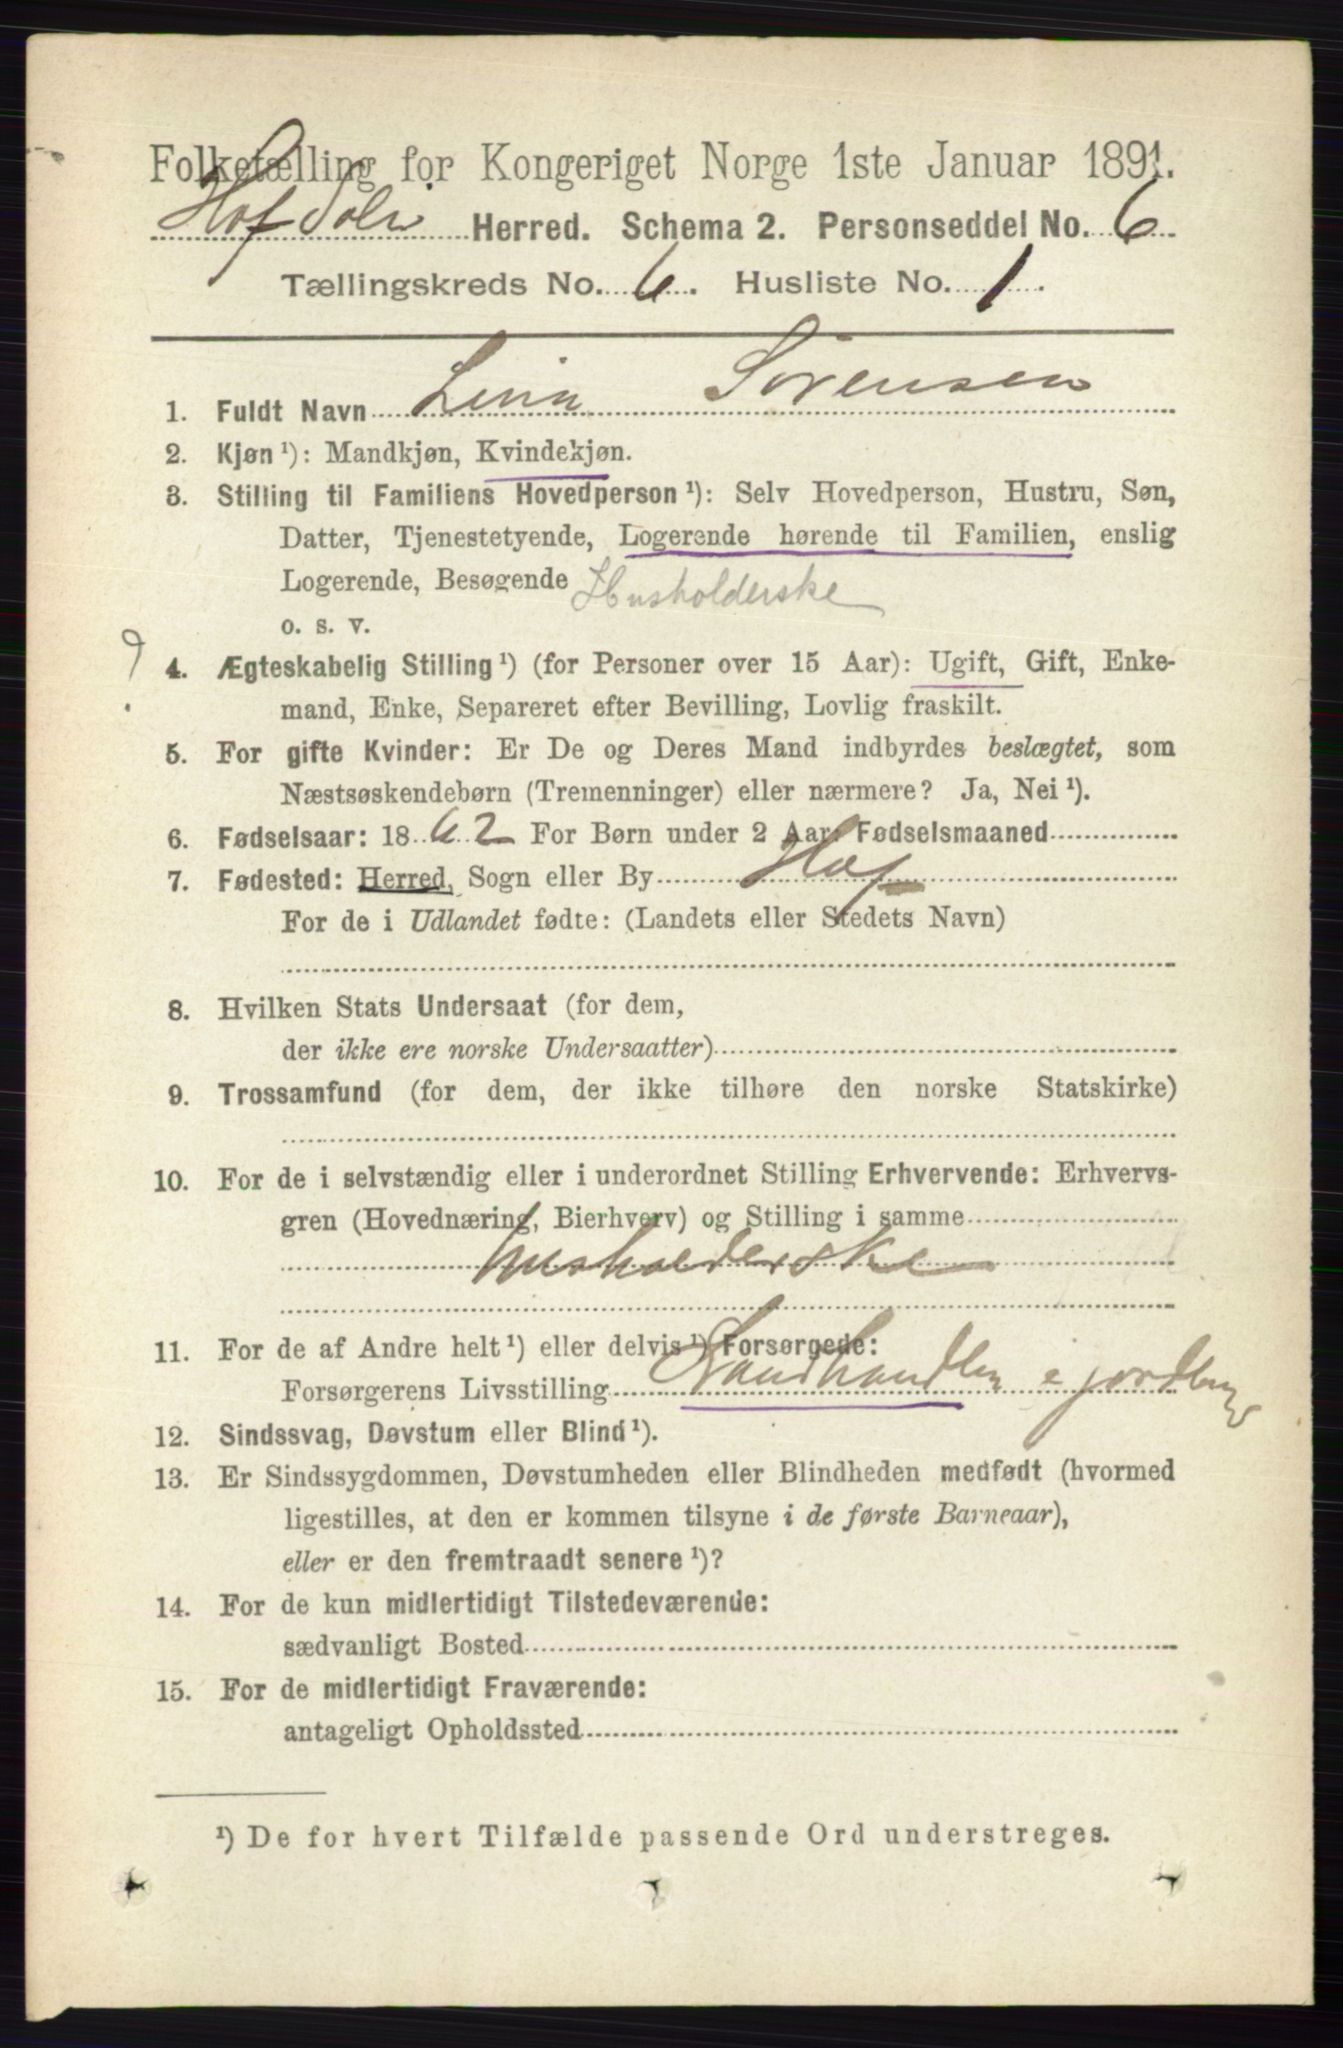 Folketælling for Kongeriget Norge 1ste Januar 1891.
Hof Herred. Schema 2. Personseddel No. 6
Tællingskreds No. 6. Husliste No. 1.
1. Fuldt Navn Lina Sörensen
2. Kjøn ¹): Mandkjøn, Kvindekjøn.
3. Stilling til Familiens Hovedperson ¹): Selv Hovedperson, Hustru, Søn,
Datter, Tjenestetyende, Logerende hørende til Familien, enslig
Logerende, Besøgende Husholderske
o. s. v.
? 4. Ægteskabelig Stilling ¹) (for Personer over 15 Aar): Ugift, Gift, Enke-
mand, Enke, Separeret efter Bevilling, Lovlig fraskilt.
5. For gifte Kvinder: Er De og Deres Mand indbyrdes beslægtet, som
Næstsøskendebørn (Tremenninger) eller nærmere? Ja, Nei ¹).
6. Fødselsaar: 1862 For Børn under 2 Aar: Fødselsmaaned
7. Fødested: Herred, Sogn eller By Hof
For de i Udlandet fødte: (Landets eller Stedets Navn)
8. Hvilken Stats Undersaat (for dem,
der ikke ere norske Undersaatter)
9. Trossamfund (for dem, der ikke tilhøre den norske Statskirke)
10. For de i selvstændig eller i underordnet Stilling Erhvervende: Erhvervs-
gren (Hovednæring, Bierhverv) og Stilling i samme
husholderske
11. For de af Andre helt ¹) eller delvis ¹) Forsørgede:
Forsørgerens Livsstilling Landhandler
12. Sindssvag, Døvstum eller Blind ¹).
13. Er Sindssygdommen, Døvstumheden eller Blindheden medfødt (hvormed
ligestilles, at den er kommen tilsyne i de første Barneaar),
eller er den fremtraadt senere ¹)?
14. For de kun midlertidigt Tilstedeværende:
sædvanligt Bosted
15. For de midlertidigt Fraværende:
antageligt Opholdssted
¹) De for hvert Tilfælde passende Ord understreges.